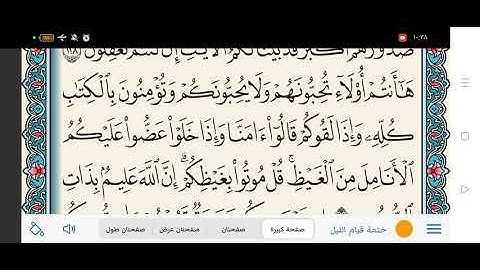 ١٠:٣٨
صُدُورُهُمْ أَكْبَرُ قَدْ بَيَّنَّا لَكُمُ الْآيَاتِ إِنْ كُنْتُمْ تَعْقِلُونَ ١١٨
هَٰٓأَنتُمْ أُو۟لَآءِ تُحِبُّونَهُمْ وَلَا يُحِبُّونَكُمْ وَتُؤْمِنُونَ بِٱلْكِتَٰبِ
كُلِّهِۦ وَإِذَا لَقُوكُمْ قَالُوٓا۟ ءَامَنَّا وَإِذَا خَلَوْا۟ عَضُّوا۟ عَلَيْكُمُ
ٱلْأَنَامِلَ مِنَ ٱلْغَيْظِ ۚ قُلْ مُوتُوا۟ بِغَيْظِكُمْ ۗ إِنَّ ٱللَّهَ عَلِيمٌۢ بِذَاتِ
ختمة قيام الليل
صفحة كبيرة
صفحتان
صفحتان عرض
صفحتان طول